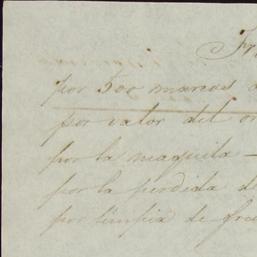 Fr
por 500 marcos d
por valor del or
por la maquila
por la perdida de
por limpia de fre